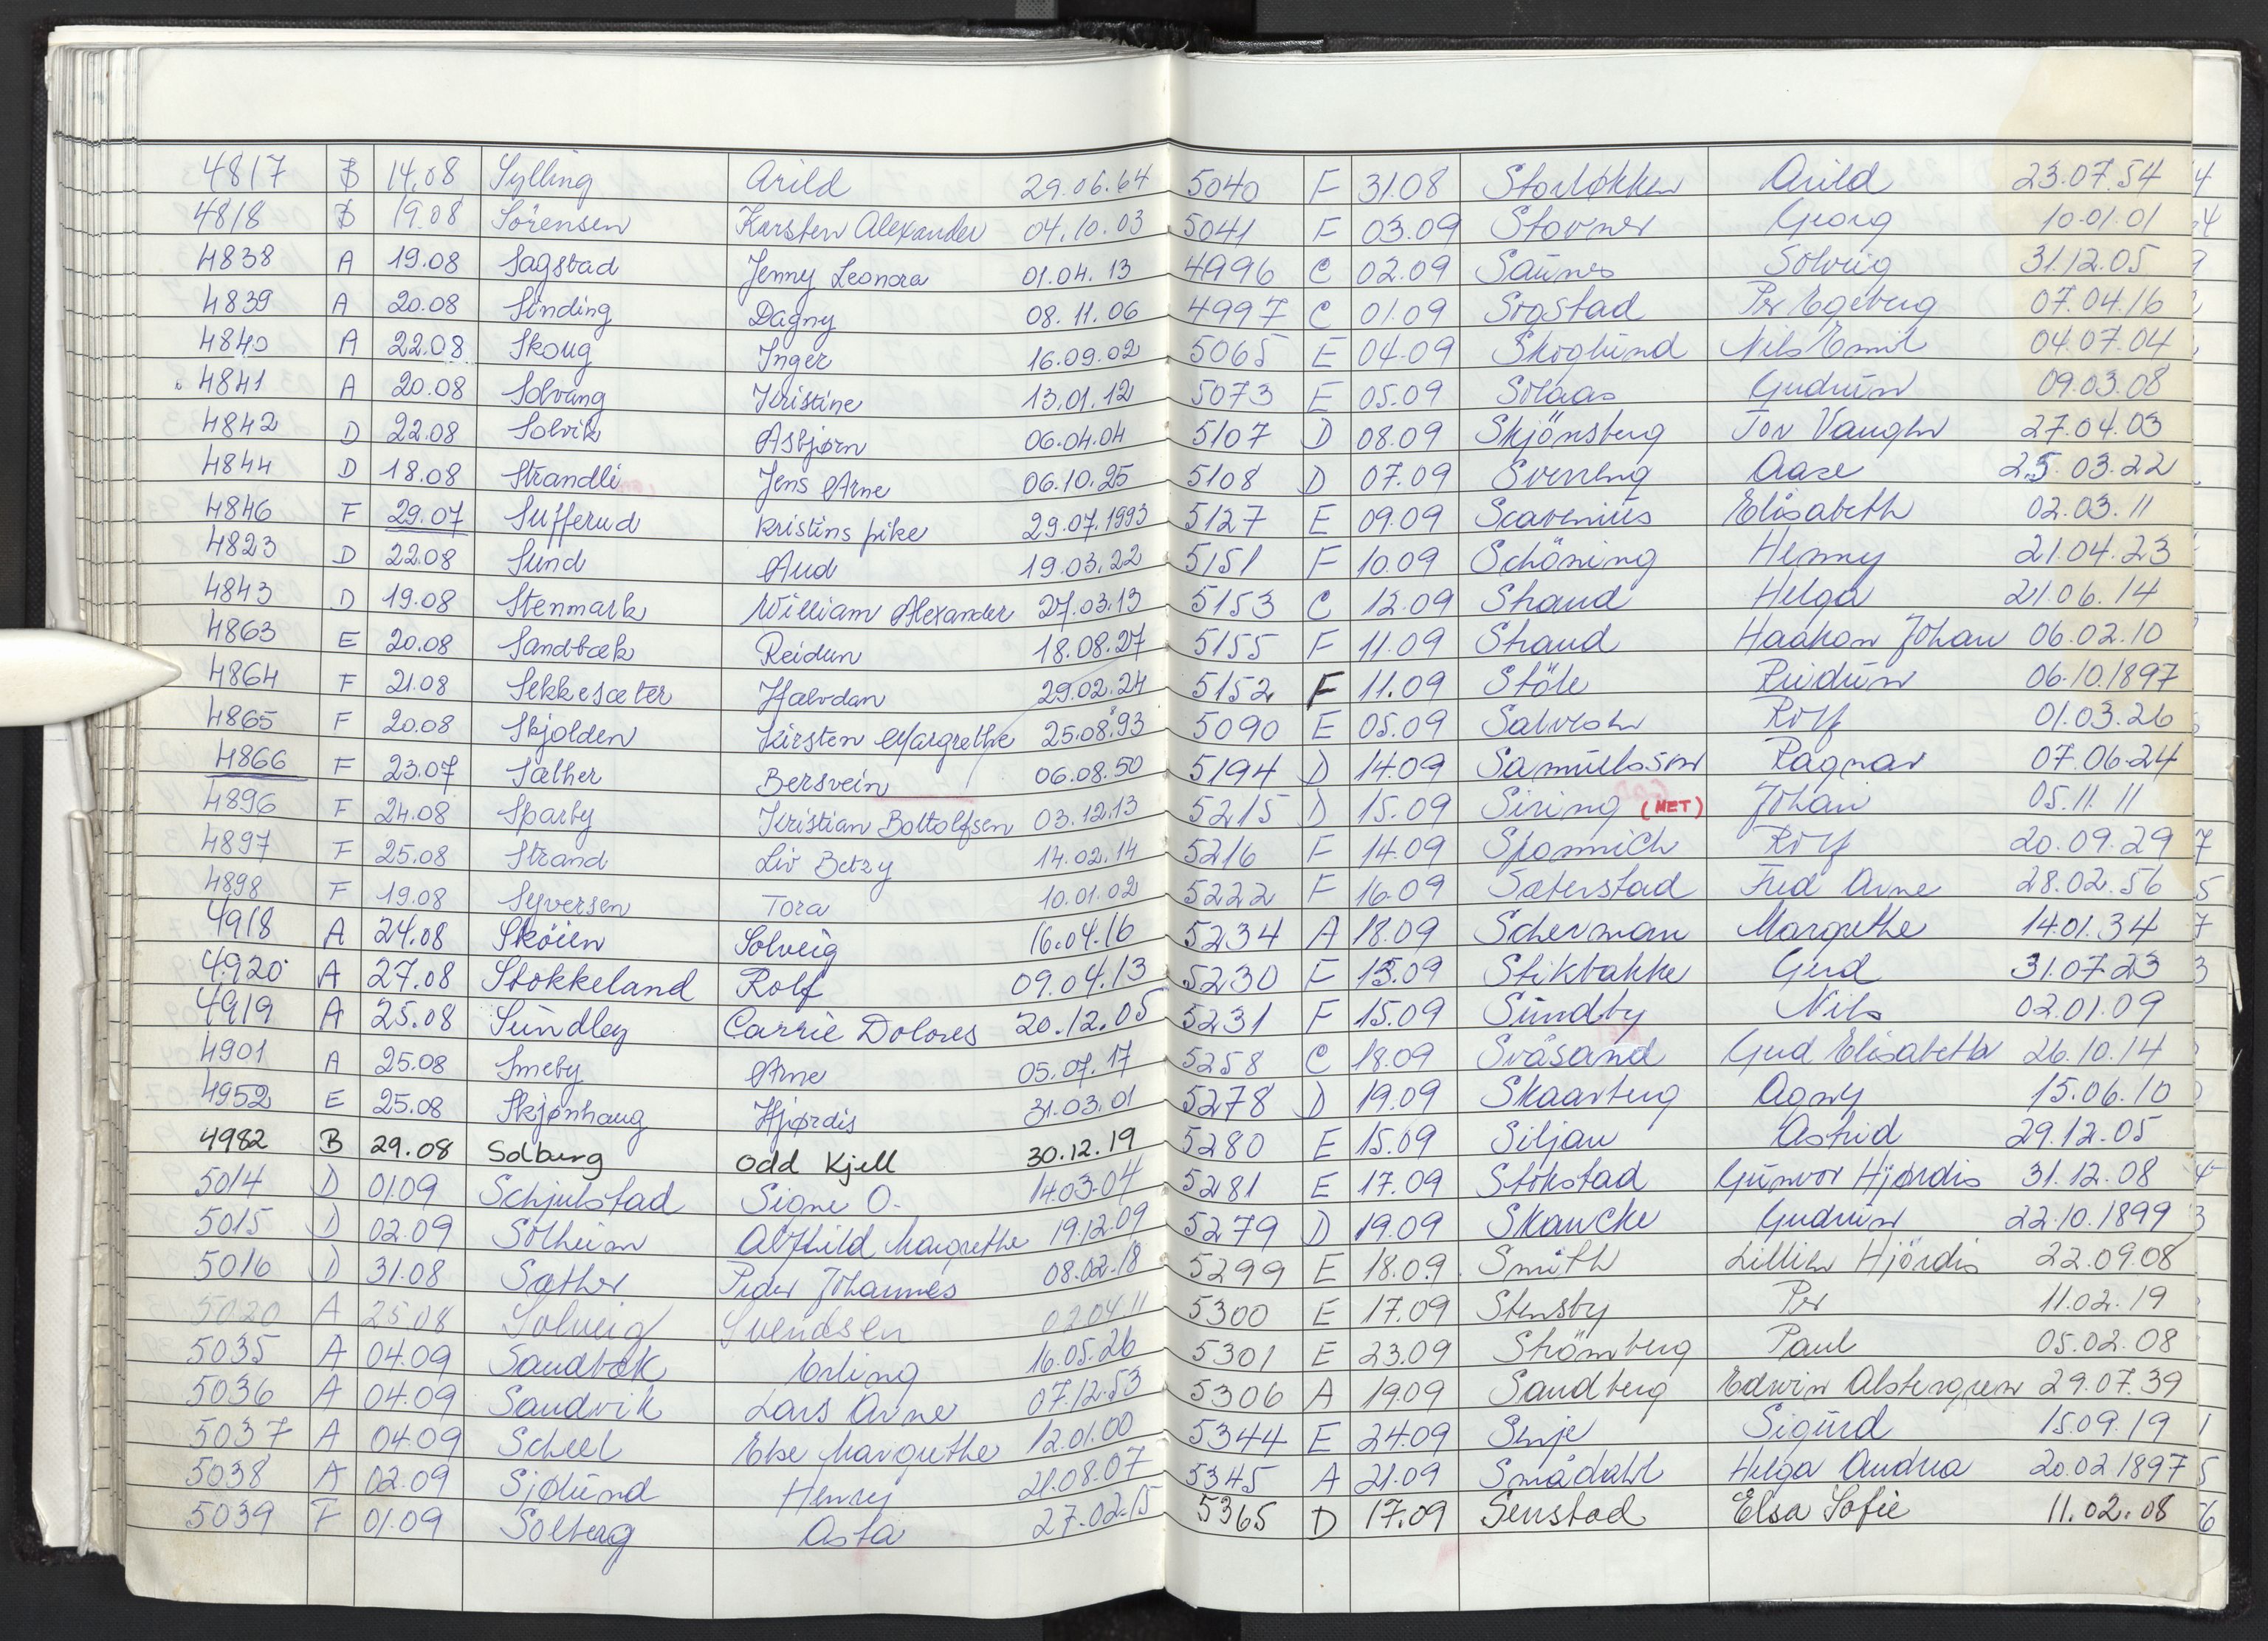 4817 B 14.08 Sylling Arild 29.06.64
4818 B 19.08 Sörensen Karsten Alexander 04.10.03
4838 A 19.08 Sagstad Jenny Leonora 01.04.13
4839 A 20.08 Sinding Dagny 08.11.06
4840 A 22.08 Skoug Inger 16.09.02
4841 A 20.08 Solvang Kristine 13.01.12
4842 D 22.08 Solvik Asbjørn 06.04.04
4844 D 18.08 Strandli Jens Arne 06.10.25
4846 F 29.07 Sufferud Kristins pike 29.07.1993
4823 D 22.08 Sund Aud 19.03.22
4843 D 19.08 Stenmark William Alexander 27.03.13
4863 E 20.08 Sandbæk Reidun 18.08.27
4864 F 21.08 Sekkesæter Halvdan 29.02.24
4865 F 20.08 Skjolden Kirsten Margrethe 25.08.93
4866 F 23.07 Sæther Bersvein 06.08.50
4896 F 24.08 Sparby Kristian Bottolfsen 03.12.13
4897 F 25.08 Strand Liv Betzy 14.02.14
4898 F 19.08 Syversen Tora 10.01.02
4918 A 24.08 Sköien Solveig 16.04.16
4920 A 27.08 Stokkeland Rolf 09.04.13
4919 A 25.08 Sundley Carrie Dolores 20.12.05
4901 A 25.08 Smeby Arne 05.07.17
4952 E 25.08 Skjønhaug Hjørdis 31.03.01
4982 B 29.08 Solberg Odd Kjell 30.12.19
5014 D 01.09 Schjulstad Signe O. 14.03.04
5015 D 02.09 Solheim Alfhild Margrethe 19.12.09
5016 D 31.08 Sæther Peder Johannes 08.02.18
5020 A 25.08 Solveig Svendsen 02.04.11
5035 A 04.09 Sandbæk Erling 16.05.26
5036 A 04.09 Sandvik Lars Arne 07.12.53
5037 A 04.09 Scheel Else Margrethe 12.01.00
5038 A 02.09 Sjølund Henry 21.08.07
5039 F 01.09 Solberg Asta 27.02.15
5040 F 31.08 Storløkken Arild 23.07.54
5041 F 03.09 Stovner Georg 10.01.01
4996 C 02.09 Saunes Solveig 31.12.05
4997 C 01.09 Sogstad Per Egeberg 07.04.16
5065 E 04.09 Skoglund Nils Emil 04.07.04
5073 E 05.09 Solaas Gudrun 09.03.08
5107 D 08.09 Skjönsberg Tov Vaughn 27.04.03
5108 D 07.09 Sveneng Aase 25.03.22
5127 E 09.09 Scavenius Elisabeth 02.03.11
5151 F 10.09 Schöning Henny 21.04.23
5153 C 12.09 Strand Helga 21.06.14
5155 F 11.09 Strand Haakon Johan 06.02.10
5152 F 11.09 Stöle Reidun 06.10.1897
5090 E 05.09 Rolf 01.03.26
5194 D 14.09 Samuelsson Ragnar 07.06.24
5215 D 15.09 Siring (MET) Johan 05.11.11
5216 F 14.09 Sponnich Rolf 20.09.29
5222 F 16.09 Sæterstad Fred Arne 28.02.56
5234 A 18.09 Scherman Margrethe 14.01.34
5230 F 15.09 Stikbakke Gerd 31.07.23
5231 F 15.09 Sundby Nils 02.01.09
5258 C 18.09 Svåsand Gerd Elisabeth 26.10.14
5278 D 19.09 Skaarberg Agny 15.06.10
5280 E 15.09 Siljan Astrid 29.12.05
5281 E 17.09 Stokstad Gunvor Hjørdis 31.12.08
5279 D 19.09 Skancke Gudrun 22.10.1899
5299 E 18.09 Smith Lillian Hjördis 22.09.08
5300 E 17.09 Stensby Per 11.02.19
5301 E 23.09 Strömberg Paul 05.02.08
5306 A 19.09 Sandberg Edwin Alstergren 29.07.39
5344 E 24.09 Senje Sigurd 15.09.19
5345 A 21.09 Smådahl Helga Andrea 20.02.1897
5365 D 17.09 Senstad Elsa Sofie 11.02.08